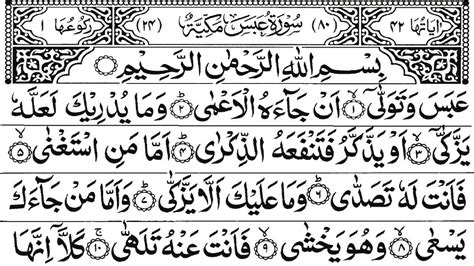 اٰیَاتُهَا ۴۲ (۸۰) سُوْرَةُ عَبَسَ مَكِّیَّةٌ (۲۴) رُكُوْعُهَا ۱
بِسْمِ اللّٰهِ الرَّحْمٰنِ الرَّحِیْمِ
عَبَسَ وَتَوَلّٰۤی ۙ﴿۱﴾ اَنْ جَآءَهُ الْاَعْمٰی ؕ﴿۲﴾ وَمَا یُدْرِیْكَ لَعَلَّهٗ
یَزَّكّٰۤی ۙ﴿۳﴾ اَوْ یَذَّكَّرُ فَتَنْفَعَهُ الذِّكْرٰی ؕ﴿۴﴾ اَمَّا مَنِ اسْتَغْنٰی ۙ﴿۵﴾
فَاَنْتَ لَهٗ تَصَدّٰی ؕ﴿۶﴾ وَمَا عَلَیْكَ اَلَّا یَزَّكّٰی ؕ﴿۷﴾ وَاَمَّا مَنْ جَآءَكَ
یَسْعٰی ۙ﴿۸﴾ وَهُوَ یَخْشٰی ۙ﴿۹﴾ فَاَنْتَ عَنْهُ تَلَهّٰی ۚ﴿۱۰﴾ كَلَّاۤ اِنَّهَا